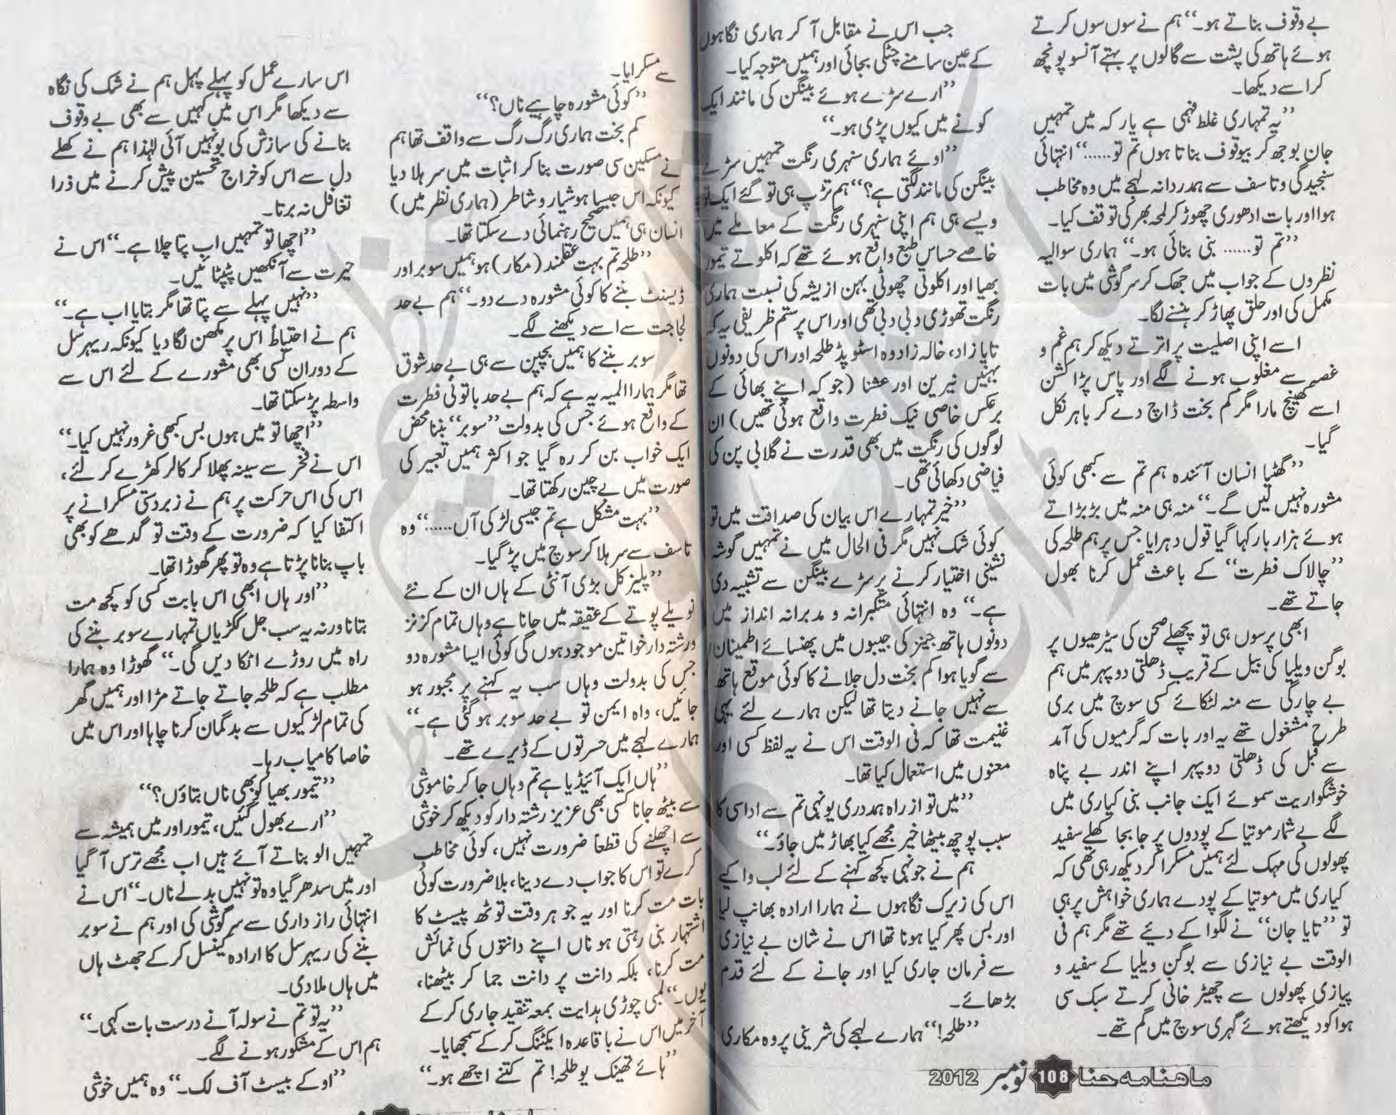 بے وقوف بناتے ہو۔“ ہم نے سوں سوں کرتے
ہوئے ہاتھ کی پشت سے گالوں پر بہتے آنسو پونچھ
کر اسے دیکھا۔
”یہ تمہاری غلط فہمی ہے یار کہ میں تمہیں
جان بوجھ کر بیوقوف بناتا ہوں تم تو......“ انتہائی
سنجیدگی و تاسف سے ہمدردانہ لہجے میں وہ مخاطب
ہوا اور بات ادھوری چھوڑ کر لحہ بھر کی توقف کیا۔
”تم تو...... بنی بنائی ہو۔“ ہماری سوالیہ
نظروں کے جواب میں جھک کر سرگوشی میں بات
مکمل کی اور حلق پھاڑ کر ہنسنے لگا۔
اسے اپنی اصلیت پر اترتے دیکھ کر ہم غم و
غصہ سے مغلوب ہونے لگے اور پاس پڑا کشن
اسے کھینچ مارا مگر کم بخت ڈاج دے کر باہر نکل
گیا۔
”گھٹیا انسان آئندہ ہم تم سے کبھی کوئی
مشورہ نہیں لیں گے۔“ منہ ہی منہ میں بڑبڑاتے
ہوئے ہزار بار کہا گیا قول دہرایا جس پر ہم طلحہ کی
”چالاک فطرت“ کے باعث عمل کرنا بھول
جاتے تھے۔
ابھی پرسوں ہی تو پچھلے صحن کی سیڑھیوں پر
بوگن ویلیا کی بیل کے قریب ڈھلتی دوپہر میں ہم
بے چارگی سے منہ لٹکائے کسی سوچ میں بری
طرح مشغول تھے یہ اور بات کہ گرمیوں کی آمد
سے قبل کی ڈھلتی دوپہر اپنے اندر بے پناہ
خوشگواریت سموئے ایک جانب بنی کیاری میں
لگے بے شمار موتیا کے پودوں پر جا بجا کھلے سفید
پھولوں کی مہک لئے ہمیں مسکرا کر دیکھ رہی تھی کہ
کیاری میں موتیا کے پودے ہماری خواہش پر ہی
تو ”تایا جان“ نے لگوا کے دیئے تھے مگر ہم فی
الوقت بے نیازی سے بوگن ویلیا کے سفید و
پیازی پھولوں سے چھیڑ خانی کرتے سبک سی
ہوا کو دیکھتے ہوئے گہری سوچ میں گم تھے۔
جب اس نے مقابل آ کر ہماری نگاہوں
کے عین سامنے چٹکی بجائی اور ہمیں متوجہ کیا۔
”ارے سڑے ہوئے بینگن کی مانند ایک
کونے میں کیوں پڑی ہو۔“
”اوئے ہماری سنہری رنگت تمہیں سڑے
بینگن کی مانند لگتی ہے؟“ ہم تڑپ ہی تو گئے ایک تو
ویسے ہی ہم اپنی سنہری رنگت کے معاملے میں
خاصے حساس طبع واقع ہوئے تھے کہ اکلوتے تیمور
بھیا اور اکلوتی چھوٹی بہن ازیشہ کی نسبت ہماری
رنگت تھوڑی دبی دبی تھی اور اس پر ستم ظریفی یہ کہ
تایا زاد، خالہ زاد وہ اسٹوپڈ طلحہ اور اس کی دونوں
بہنیں نیرین اور عشنا (جو کہ اپنے بھائی کے
برعکس خاصی نیک فطرت واقع ہوئی تھیں) ان
لوگوں کی رنگت میں بھی قدرت نے گلابی پن کی
فیاضی دکھائی تھی۔
”خیر تمہارے اس بیان کی صداقت میں تو
کوئی شک نہیں مگر فی الحال میں نے تمہیں گوشہ
نشینی اختیار کرنے پر سڑے بینگن سے تشبیہ دی
ہے۔“ وہ انتہائی متکبرانہ و مدبرانہ انداز میں
دونوں ہاتھ جینز کی جیبوں میں پھنسائے اطمینان
سے گویا ہوا کم بخت دل جلانے کا کوئی موقع ہاتھ
سے نہیں جانے دیتا تھا لیکن ہمارے لئے یہی
غنیمت تھا کہ فی الوقت اس نے یہ لفظ کسی اور
معنوں میں استعمال کیا تھا۔
”میں تو از راہ ہمدردی یونہی تم سے اداسی کا
سبب پوچھ بیٹھا خیر مجھے کیا بھاڑ میں جاؤ۔“
ہم نے جونہی کچھ کہنے کے لئے لب وا کیے
اس کی زیرک نگاہوں نے ہمارا ارادہ بھانپ لیا
اور بس پھر کیا ہونا تھا اس نے شان بے نیازی
سے فرمان جاری کیا اور جانے کے لئے قدم
بڑھائے۔
”طلحہ!“ ہمارے لہجے کی شرینی پر وہ مکاری
ماهنامه حنا 108 نومبر 2012
سے مسکرایا۔
”کوئی مشورہ چاہیے ناں؟“
کم بخت ہماری رگ رگ سے واقف تھا ہم
نے مسکین سی صورت بنا کر اثبات میں سر ہلا دیا
کیونکہ اس جیسا ہوشیار و شاطر (ہماری نظر میں)
انسان ہی ہمیں صحیح رہنمائی دے سکتا تھا۔
”طلحہ تم بہت عقلمند (مکار) ہو ہمیں سوبر اور
ڈیسنٹ بننے کا کوئی مشورہ دے دو۔“ ہم بے حد
لجاجت سے اسے دیکھنے لگے۔
سوبر بننے کا ہمیں بچپن سے ہی بے حد شوق
تھا مگر ہمارا المیہ یہ ہے کہ ہم بے حد باتونی فطرت
کے واقع ہوئے جس کی بدولت ”سوبر“ بننا محض
ایک خواب بن کر رہ گیا جو اکثر ہمیں تعبیر کی
صورت میں بے چین رکھتا تھا۔
”بہت مشکل ہے تم جیسی لڑکی آں......“ وہ
تاسف سے سر ہلا کر سوچ میں پڑ گیا۔
”پلیز کل بڑی آنٹی کے ہاں ان کے نئے
نویلے پوتے کے عقیقہ میں جانا ہے وہاں تمام کزنز
و رشتہ دار خواتین موجود ہوں گی کوئی ایسا مشورہ دو
جس کی بدولت وہاں سب یہ کہنے پر مجبور ہو
جائیں، واہ ایمن تو بے حد سوبر ہو گئی ہے۔“
ہمارے لہجے میں حسرتوں کے ڈیرے تھے۔
”ہاں ایک آئیڈیا ہے تم وہاں جا کر خاموشی
سے بیٹھ جانا کسی بھی عزیز رشتہ دار کو دیکھ کر خوشی
سے اچھلنے کی قطعاً ضرورت نہیں، کوئی مخاطب
کرے تو اس کا جواب دے دینا، بلا ضرورت کوئی
بات مت کرنا اور یہ جو ہر وقت ٹوتھ پیسٹ کا
اشتہار بنی رہتی ہو ناں اپنے دانتوں کی نمائش
مت کرنا، بلکہ دانت پر دانت جما کر بیٹھنا،
یوں۔“ لمبی چوڑی ہدایت بمعہ تنقید جاری کر کے
آخر میں اس نے باقاعدہ ایکٹنگ کر کے سمجھایا۔
”ہائے تھینک یو طلحہ! تم کتنے اچھے ہو۔“
اس سارے عمل کو پہلے پہل ہم نے شک کی نگاہ
سے دیکھا مگر اس میں کہیں سے بھی بے وقوف
بنانے کی سازش کی بو نہیں آئی لہٰذا ہم نے کھلے
دل سے اس کو خراج تحسین پیش کرنے میں ذرا
تغافل نہ برتا۔
”اچھا تو تمہیں اب پتا چلا ہے۔“ اس نے
حیرت سے آنکھیں پٹپٹائیں۔
”نہیں پہلے سے پتا تھا مگر بتایا اب ہے۔“
ہم نے احتیاطً اس پر مکھن لگا دیا کیونکہ ریہرسل
کے دوران کسی بھی مشورے کے لئے اس سے
واسطہ پڑ سکتا تھا۔
”اچھا تو میں ہوں بس کبھی غرور نہیں کیا۔“
اس نے فخر سے سینہ پھلا کر کالر کھڑے کر لئے،
اس کی اس حرکت پر ہم نے زبردستی مسکرانے پر
اکتفا کیا کہ ضرورت کے وقت تو گدھے کو بھی
باپ بنانا پڑتا ہے وہ تو پھر گھوڑا تھا۔
”اور ہاں ابھی اس بابت کسی کو کچھ مت
بتانا ورنہ یہ سب جل ککڑیاں تمہارے سوبر بننے کی
راہ میں روڑے اٹکا دیں گی۔“ گھوڑا وہ ہمارا
مطلب ہے کہ طلحہ جاتے جاتے مڑا اور ہمیں گھر
کی تمام لڑکیوں سے بدگمان کرنا چاہا اور اس میں
خاصا کامیاب رہا۔
”تیمور بھیا کو بھی ناں بتاؤں؟“
”ارے بھول گئیں، تیمور اور میں ہمیشہ سے
تمہیں الو بناتے آئے ہیں اب مجھے ترس آ گیا
اور میں سدھر گیا وہ تو نہیں بدلے ناں۔“ اس نے
انتہائی رازداری سے سرگوشی کی اور ہم نے سوبر
بننے کی ریہرسل کا ارادہ کینسل کر کے جھٹ ہاں
میں ہاں ملا دی۔
”یہ تو تم نے سولہ آنے درست بات کہی۔“
ہم اس کے مشکور ہونے لگے۔
”او کے بیسٹ آف لک۔“ وہ ہمیں خوشی